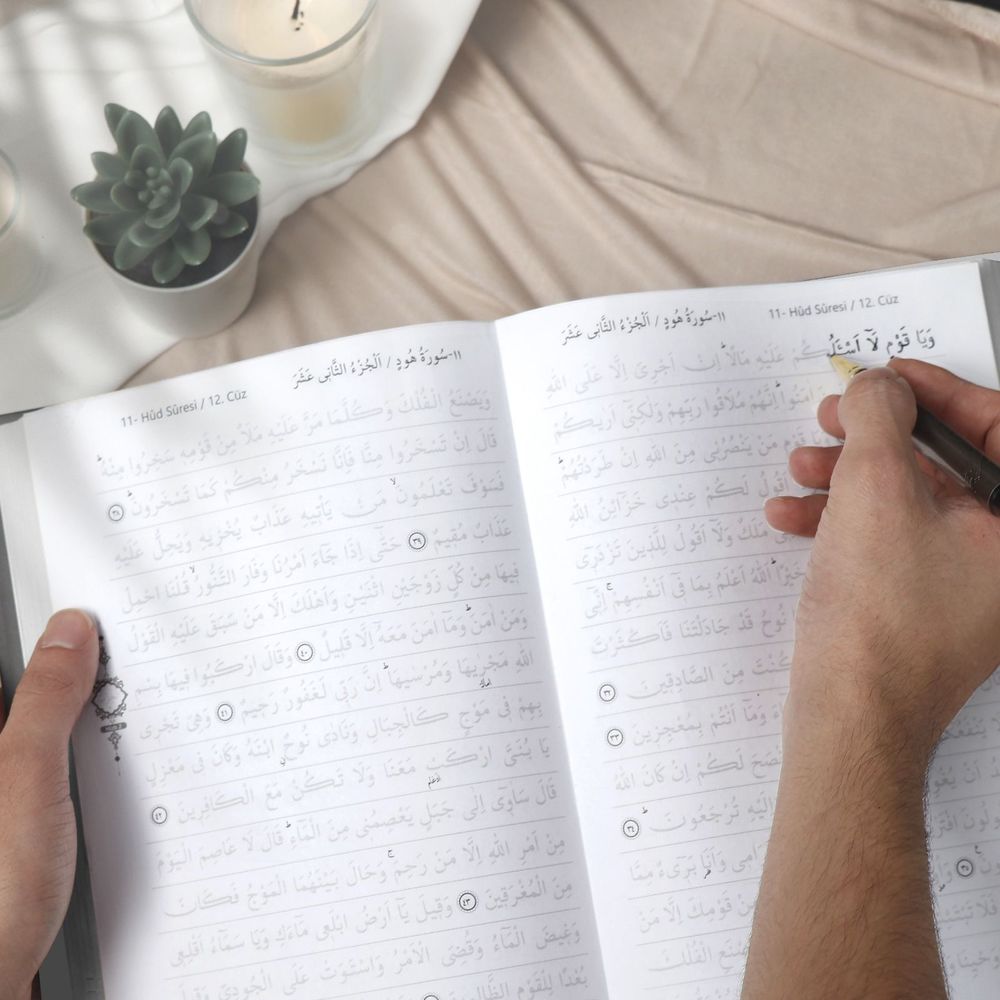 ١١-سُورَةُ هُودٍ / اَلْجُزْءُ الثَّانِى عَشَرَ
11- Hûd Sûresi / 12. Cüz
وَيَا قَوْمِ لَآ اَسْـَٔلُكُمْ عَلَيْهِ مَالًا اِنْ اَجْرِىَ اِلَّا عَلَى اللّٰهِ
اٰمَنُوا اِنَّهُمْ مُلَاقُوا رَبِّهِمْ وَلٰكِنّٖٓى اَرٰيكُمْ
قَوْمِ مَنْ يَنْصُرُنٖى مِنَ اللّٰهِ اِنْ طَرَدْتُهُمْ
اَقُولُ لَكُمْ عِنْدٖى خَزَآئِنُ اللّٰهِ
مَلَكٌ وَلَآ اَقُولُ لِلَّذٖينَ تَزْدَرٖٓى
خَيْرًا اَللّٰهُ اَعْلَمُ بِمَا فٖٓى اَنْفُسِهِمْ اِنّٖٓى
نُوحُ قَدْ جَادَلْتَنَا فَاَكْثَرْتَ
كُنْتَ مِنَ الصَّادِقٖينَ ٣٢
وَمَآ اَنْتُمْ بِمُعْجِزٖينَ ٣٣
لَكُمْ اِنْ كَانَ اللّٰهُ
تُرْجَعُونَ ٣٤
وَاَنَا بَرٖٓىءٌ مِمَّا ٣٥
قَوْمِكَ اِلَّا مَنْ
الْفُلْكَ
١١-سُورَةُ هُودٍ / اَلْجُزْءُ الثَّانِى عَشَرَ
11- Hûd Sûresi / 12. Cüz
وَيَصْنَعُ الْفُلْكَ وَكُلَّمَا مَرَّ عَلَيْهِ مَلَاٌ مِنْ قَوْمِهٖ سَخِرُوا مِنْهُ
قَالَ اِنْ تَسْخَرُوا مِنَّا فَاِنَّا نَسْخَرُ مِنْكُمْ كَمَا تَسْخَرُونَ ٣٨
فَسَوْفَ تَعْلَمُونَ مَنْ يَأْتٖيهِ عَذَابٌ يُخْزٖيهِ وَيَحِلُّ عَلَيْهِ
عَذَابٌ مُقٖيمٌ ٣٩ حَتّٰٓى اِذَا جَآءَ اَمْرُنَا وَفَارَ التَّنُّورُ قُلْنَا احْمِلْ
فٖيهَا مِنْ كُلٍّ زَوْجَيْنِ اثْنَيْنِ وَاَهْلَكَ اِلَّا مَنْ سَبَقَ عَلَيْهِ الْقَوْلُ
وَمَنْ اٰمَنَ وَمَآ اٰمَنَ مَعَهُٓ اِلَّا قَلٖيلٌ ٤٠ وَقَالَ ارْكَبُوا فٖيهَا بِسْمِ
اللّٰهِ مَجْرٰۭيهَا وَمُرْسٰيهَا اِنَّ رَبّٖى لَغَفُورٌ رَحٖيمٌ ٤١ وَهِىَ تَجْرٖى
بِهِمْ فٖى مَوْجٍ كَالْجِبَالِ وَنَادٰى نُوحٌ ابْنَهُ وَكَانَ فٖى مَعْزِلٍ
يَا بُنَىَّ ارْكَبْ مَعَنَا وَلَا تَكُنْ مَعَ الْكَافِرٖينَ ٤٢
قَالَ سَاٰوٖٓى اِلٰى جَبَلٍ يَعْصِمُنٖى مِنَ الْمَآءِ قَالَ لَا عَاصِمَ الْيَوْمَ
مِنْ اَمْرِ اللّٰهِ اِلَّا مَنْ رَحِمَ وَحَالَ بَيْنَهُمَا الْمَوْجُ فَكَانَ
مِنَ الْمُغْرَقٖينَ ٤٣ وَقٖيلَ يَآ اَرْضُ ابْلَعٖى مَآءَكِ وَيَا سَمَآءُ اَقْلِعٖى
وَغٖيضَ الْمَآءُ وَقُضِىَ الْاَمْرُ وَاسْتَوَتْ عَلَى الْجُودِىِّ وَقٖيلَ
بُعْدًا لِلْقَوْمِ الظَّالِمٖينَ